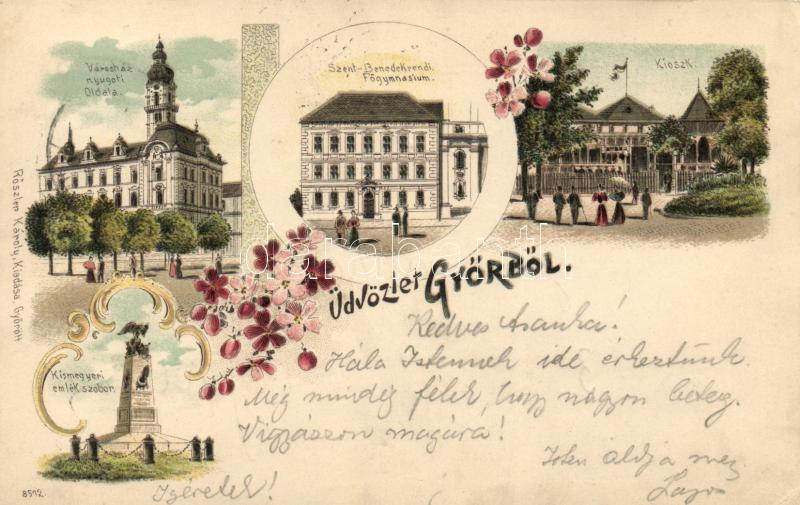 Városház
nyugoti
Oldala.
Szent-Benedekrendi
Főgymnasium.
Kioszk.
Rószler Károly, Kiadása, Győrött
darabanth.com
Üdvözlet Győrből.
Kismegyeri
emlék szobor.
Kedves Asanka!
Hála Istennek ide érkeztünk.
Még mindig félek, hogy nagyon beteg.
Vigyázzon magára!
Isten áldja meg
Lajos
Igéretek!
8512.